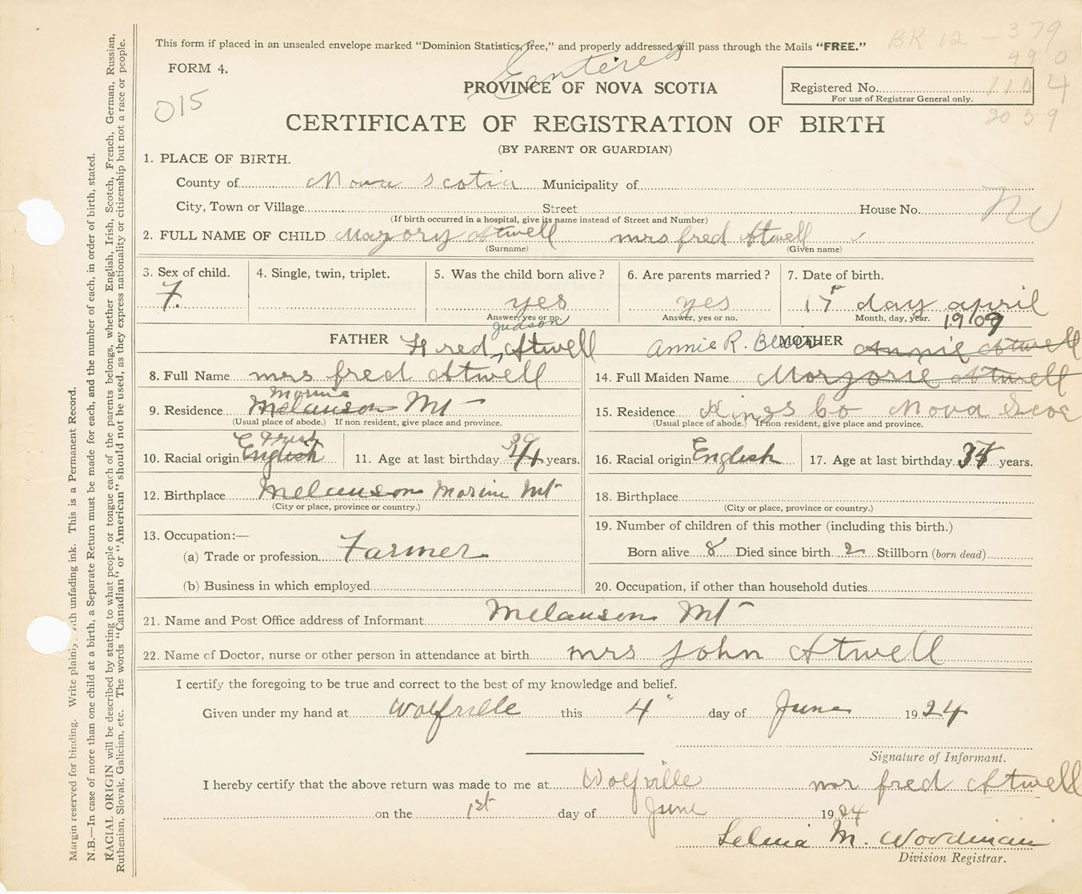 This form if placed in an unsealed envelope marked "Dominion Statistics, free," and properly addressed will pass through the Mails "FREE."
BR 12 - 379
FORM 4.
Entered
490
015
PROVINCE OF NOVA SCOTIA
Registered No. 110 4
For use of Registrar General only.
2059
CERTIFICATE OF REGISTRATION OF BIRTH
(BY PARENT OR GUARDIAN)
1. PLACE OF BIRTH.
County of Nova Scotia Municipality of
City, Town or Village Street House No.
(If birth occurred in a hospital, give its name instead of Street and Number)
2. FULL NAME OF CHILD Marjory Atwell mrs fred Atwell
(Surname) (Given name)
3. Sex of child. 4. Single, twin, triplet. 5. Was the child born alive? 6. Are parents married? 7. Date of birth.
F. yes yes 17 day april
Answer, yes or no. Answer, yes or no. Month, day, year. 1909
Judson
FATHER Fred Atwell Annie R. MOTHER Annie Atwell
8. Full Name mrs fred Atwell 14. Full Maiden Name Marjorie Atwell
9. Residence Melanson Mt 15. Residence Kings Co Nova Scoe
(Usual place of abode.) If non resident, give place and province. (Usual place of abode.) If non resident, give place and province.
Irish
10. Racial origin English 11. Age at last birthday years. 16. Racial origin English 17. Age at last birthday years.
12. Birthplace Melanson Mt 18. Birthplace
(City or place, province or country.) (City or place, province or country.)
13. Occupation:— 19. Number of children of this mother (including this birth.)
(a) Trade or profession Farmer Born alive 8 Died since birth 2 Stillborn (born dead)
(b) Business in which employed 20. Occupation, if other than household duties
21. Name and Post Office address of Informant Melanson Mt
22. Name of Doctor, nurse or other person in attendance at birth mrs John Atwell
I certify the foregoing to be true and correct to the best of my knowledge and belief.
Given under my hand at Wolfville this 4 day of June 1924
Signature of Informant.
I hereby certify that the above return was made to me at Wolfville mr fred Atwell
on the 1st day of June 1924
Selma M. Woodman
Division Registrar.
Margin reserved for binding. Write plainly, with unfading ink. This is a Permanent Record.
N.B.—In case of more than one child at a birth, a Separate Return must be made for each, and the number of each, in order of birth, stated.
RACIAL ORIGIN will be described by stating to what people or tongue each of the parents belongs, whether English, Irish, Scotch, French, German, Russian,
Ruthenian, Slovak, Galician, etc. The words "Canadian" or "American" should not be used, as they express nationality or citizenship but not a race or people.